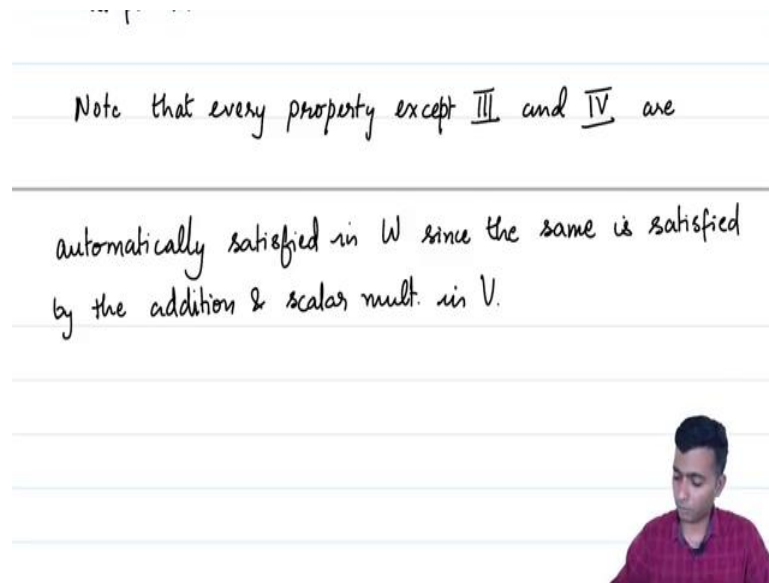 Note that every property except III and IV are
automatically satisfied in W since the same is satisfied
by the addition & scalar mult. in V.